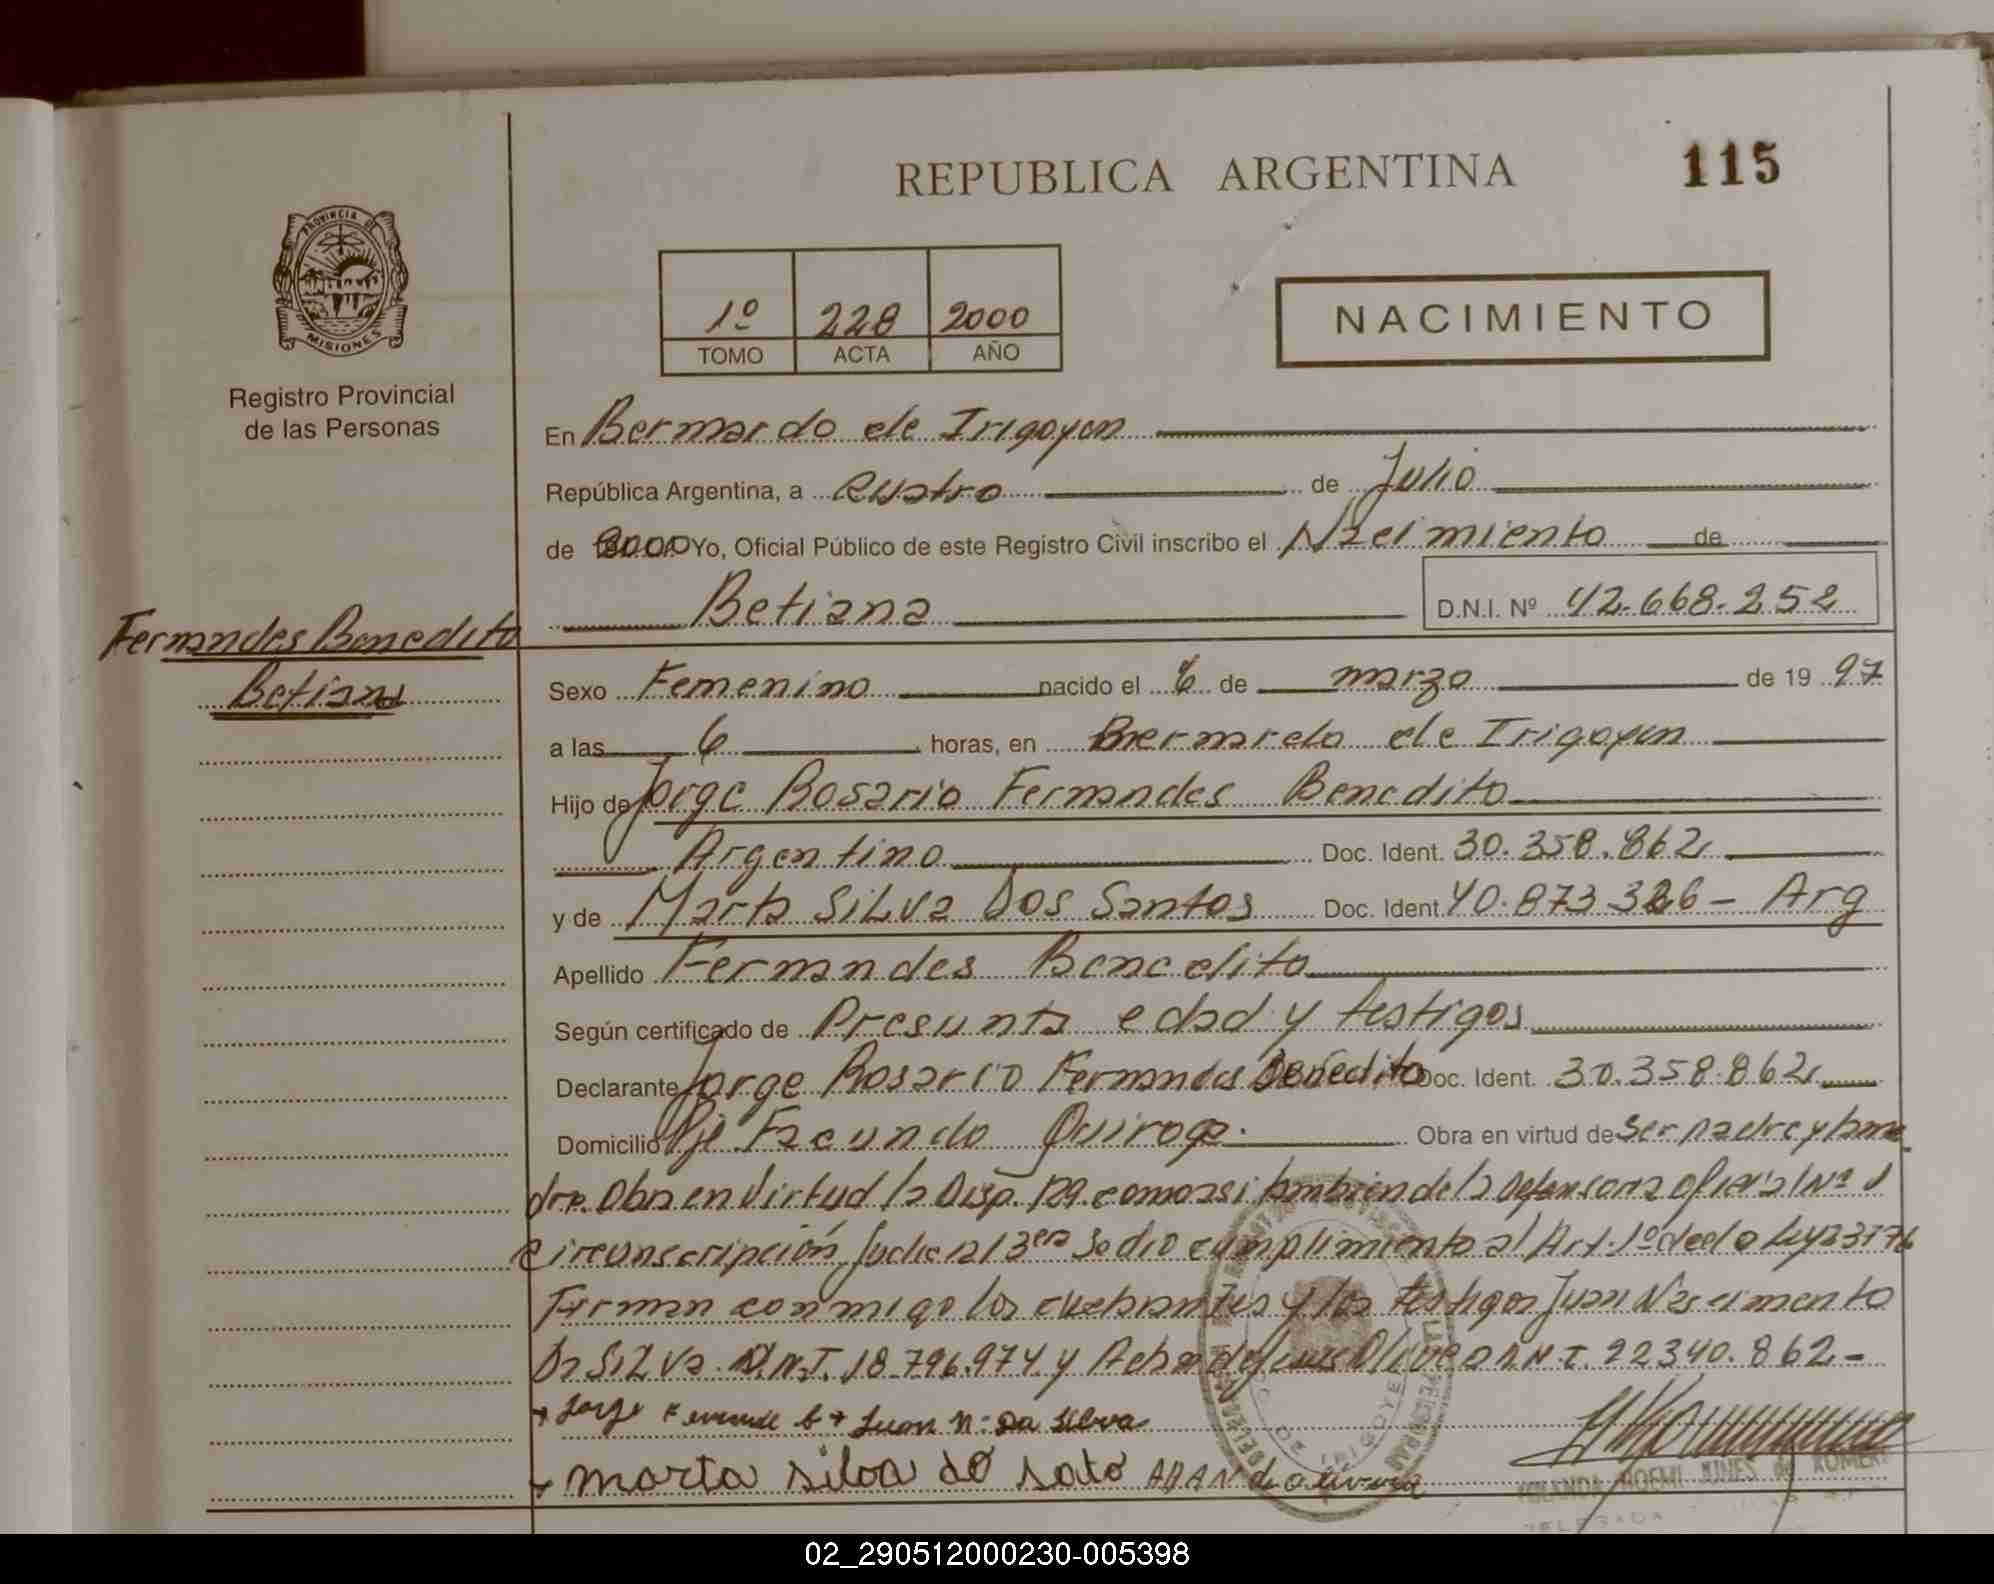 REPUBLICA ARGENTINA
115
PROVINCIA DE
MISIONES
Registro Provincial
de las Personas
1º 228 2000
TOMO ACTA AÑO
NACIMIENTO
En Bernardo de Irigoyen
República Argentina, a cuatro de Julio
de 2000 Yo, Oficial Público de este Registro Civil inscribo el Nacimiento de
Betiana D.N.I. Nº 42.668.252
Fernandes Benedito
Betiana
Sexo Femenino nacido el 6 de marzo de 19 97
a las 6 horas, en Bernardo de Irigoyen
Hijo de Jorge Rosario Fernandes Benedito
Argentino Doc. Ident. 30.358.862
y de Marta SiLva Dos Santos Doc. Ident 40.873.326 - Arg
Apellido Fernandes Benedito
Según certificado de Presunta edad y testigos
Declarante Jorge Rosario Fernandes Benedito Doc. Ident. 30.358.862
Domicilio Pje Facundo Quiroga. Obra en virtud de ser padre y
dre. Obra en Virtud la Disp. 129. como asi tambien de la Defensoria oficial Nº 1
circunscripción Judicial 3era se dio cumplimiento al Art. 1º de la Ley 23776
Firman conmigo los y los testigos Juan Nascimento
Da SiLva D.N.I. 18.796.974 y D.N.I. 22340.862-
+ Jorge b + Juan N: Da Silva
+ marta silva do sato ADAN de olivera
YOLANDA NOEMI de ROMERO
DELEGADA
02_290512000230-005398